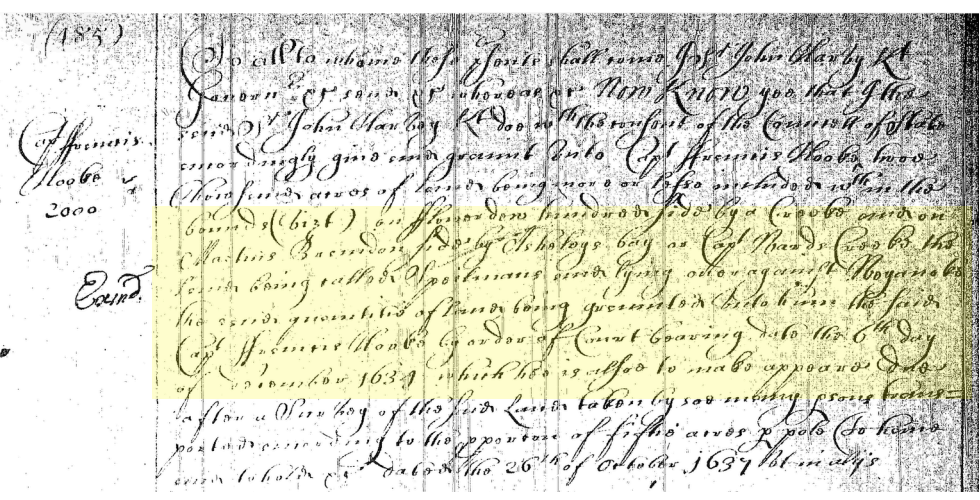 (185)
To all to whome these psents shall come I Sr John Harvey Kt
Govern.r &c send &c whereas &c Now Know yee that I the
said Sr John Harvey Kt doe wth the consent of the Councell of State
accordingly give and graunt unto Capt ffrancis Hooke two
Capt ffrancis
Hooke
2000
thousand acres of land being more or lesse included wthin the
bounds (vizt) on fflowerdew hundred side by a Creeke and on
Martins Brandon side by bay or Capt Wards Creeke the
land being called Speilmans and lying over against
Exind.
the said quantitie of land being graunted unto him the said
Capt ffrancis Hooke by order of Court bearing date the 6th day
of December 1634 which hee is alsoe to make appeare due
after a Survey of the said Land taken by soe many psons trans=
ported according to the pporcon of fiftie acres p pole (To have
and to hold &c dated the 26th of October 1637 ut in alijs